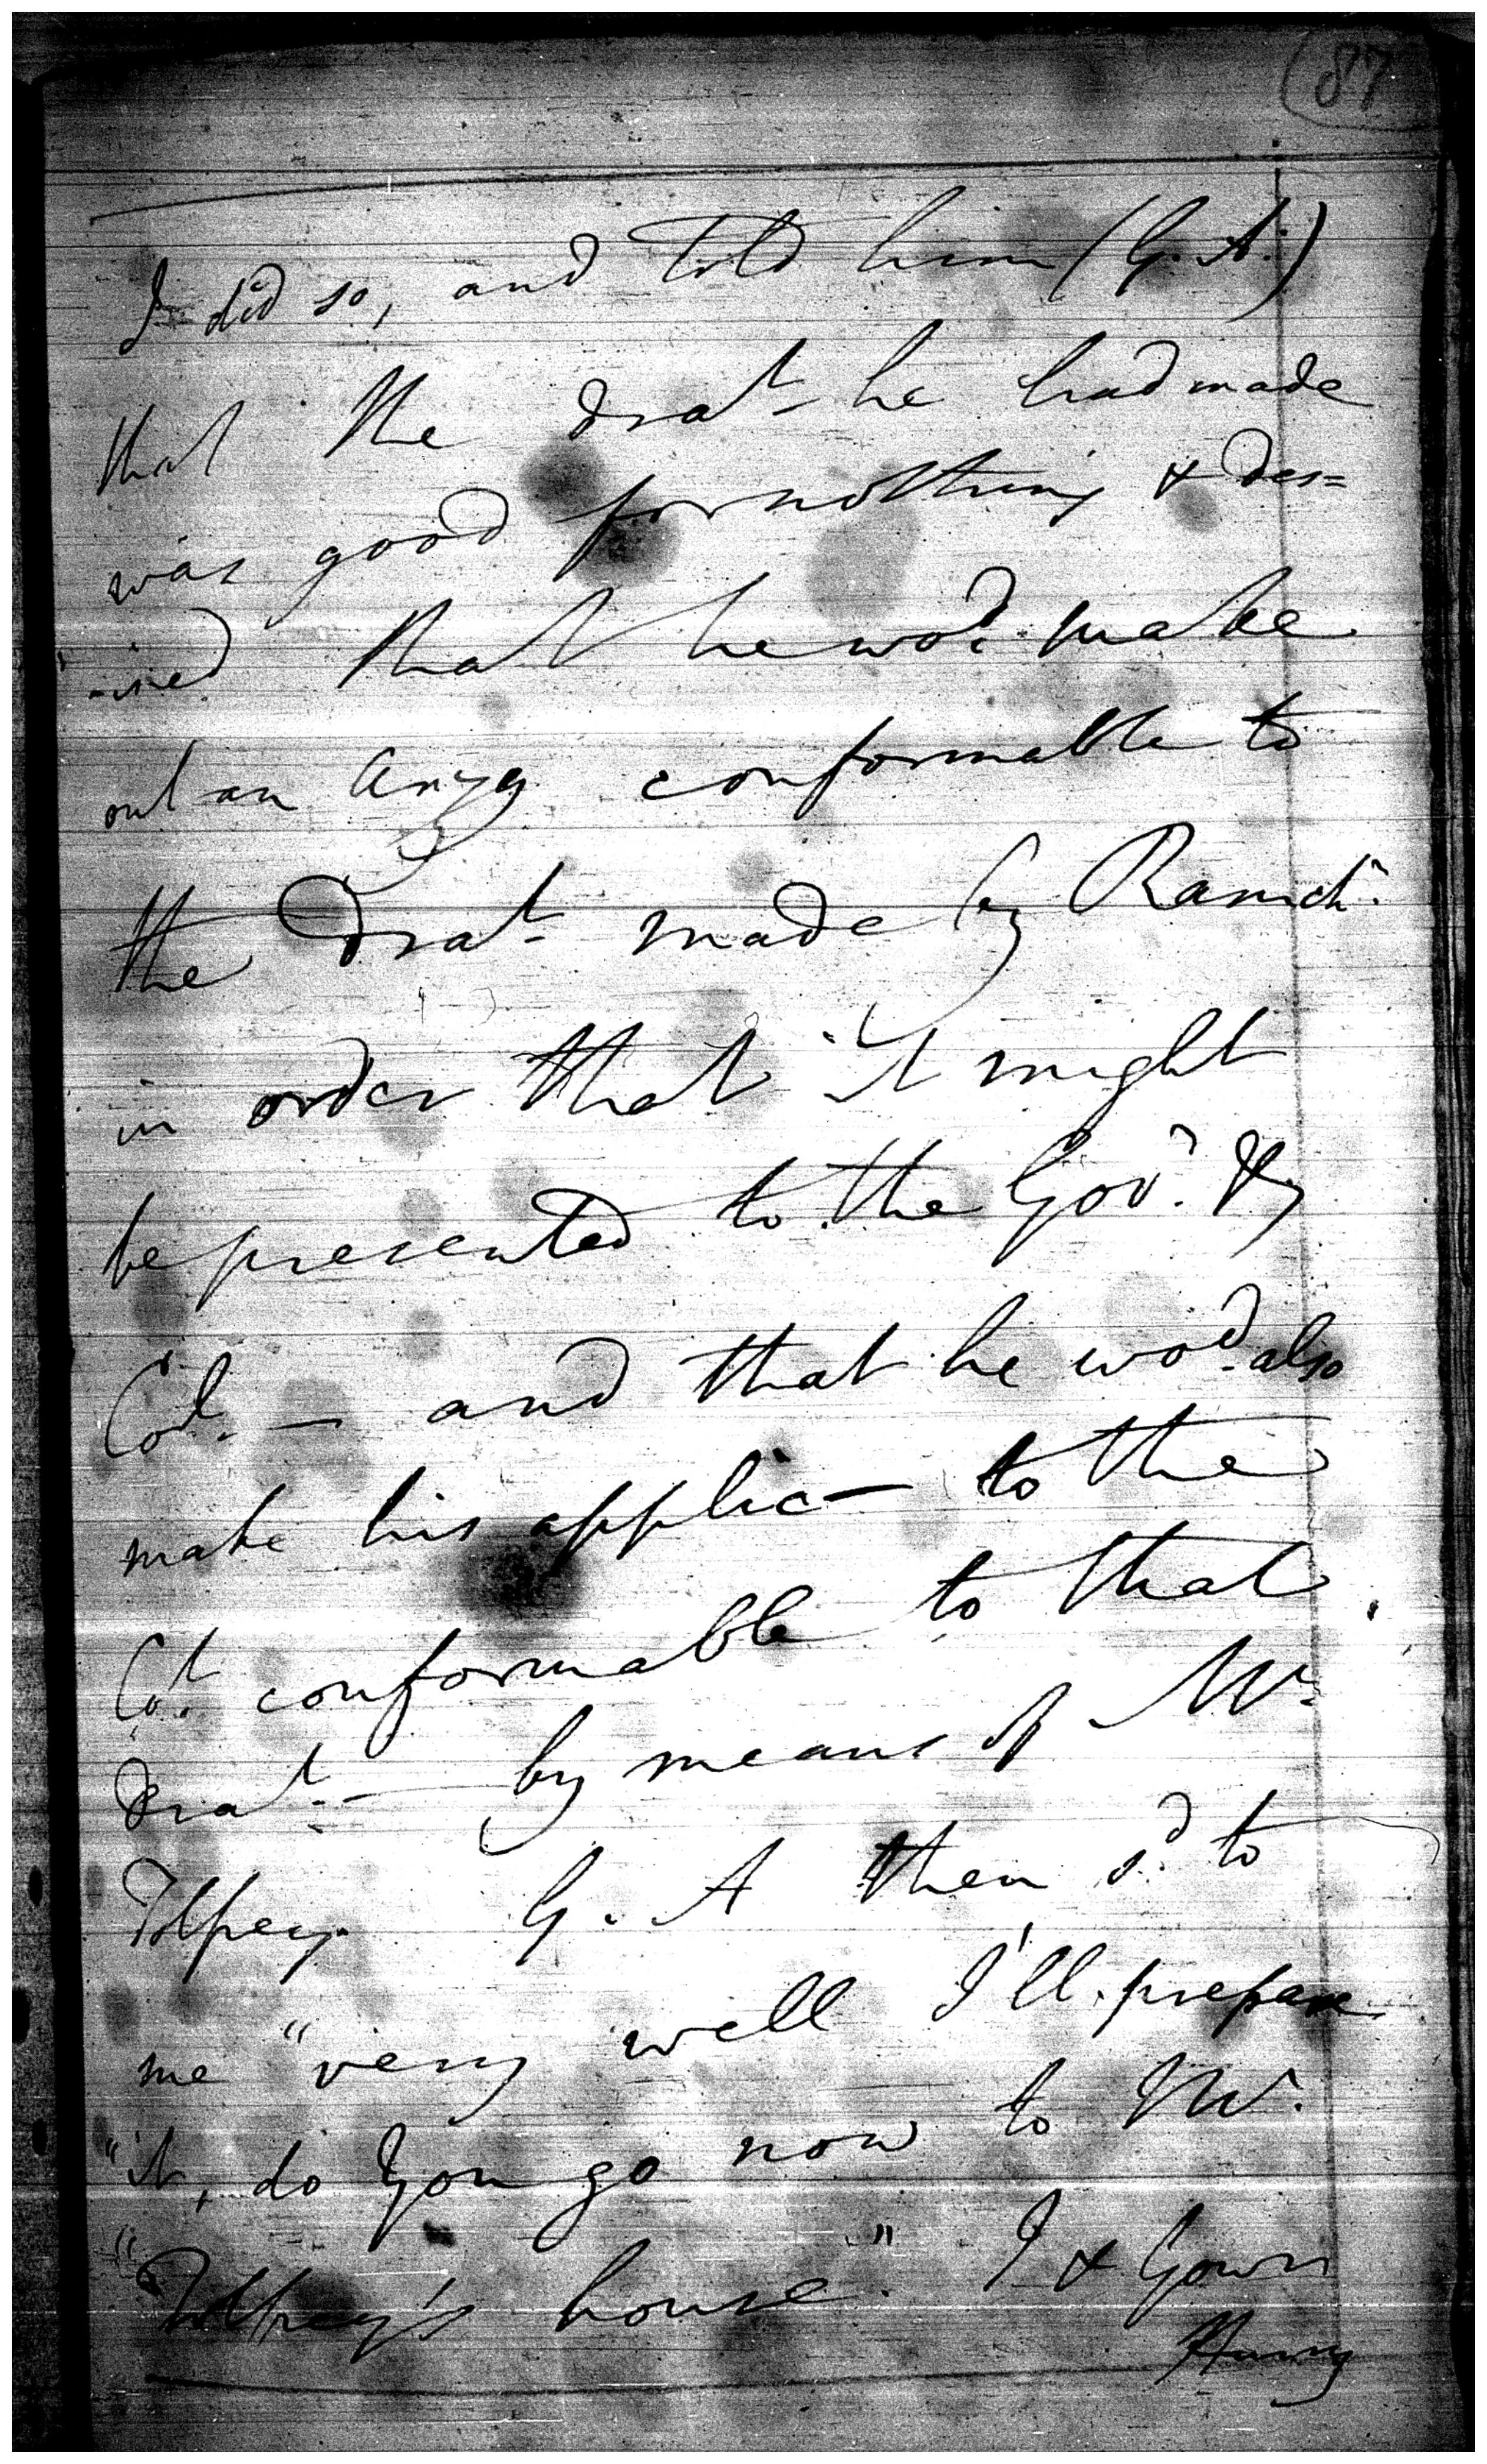 (87
I did so, and told him (G. A.)
that the Drat he had made
was good for nothing & des=
-ired that he wod. make
out an Arzy conformable to
the Drat made by Ramch.
in order that it might
be presented to the Gov.r &
Col. — and that he wod. also
make his applic— to the
Cot. conformable to that
Drat. — by means of Mr.
Tolfrey. G. A then sd. to
me "very well I'll prepare
"it, do you go now to Mr.
"Tolfrey's house." I & Gowr
Hurry